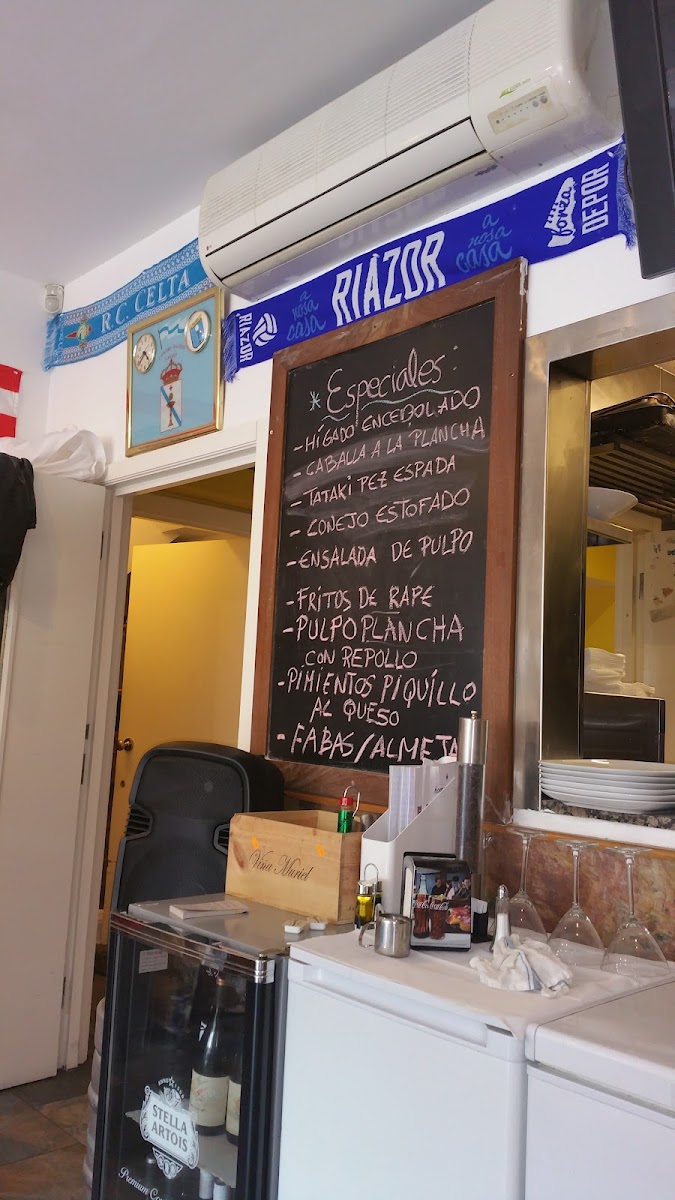 R.C. CELTA
RIAZOR
a
nosa
casa
RIAZOR
a
nosa
casa
forza
DEPOR
* Especiales:
- HÍGADO ENCEBOLADO
- CABALLA A LA PLANCHA
- TATAKI PEZ ESPADA
- CONEJO ESTOFADO
- ENSALADA DE PULPO
- FRITOS DE RAPE
- PULPO PLANCHA
CON REPOLLO
- PIMIENTOS PIQUILLO
AL QUESO
- FABAS/ALMEJA
Viña Muriel
STELLA
ARTOIS
Premium